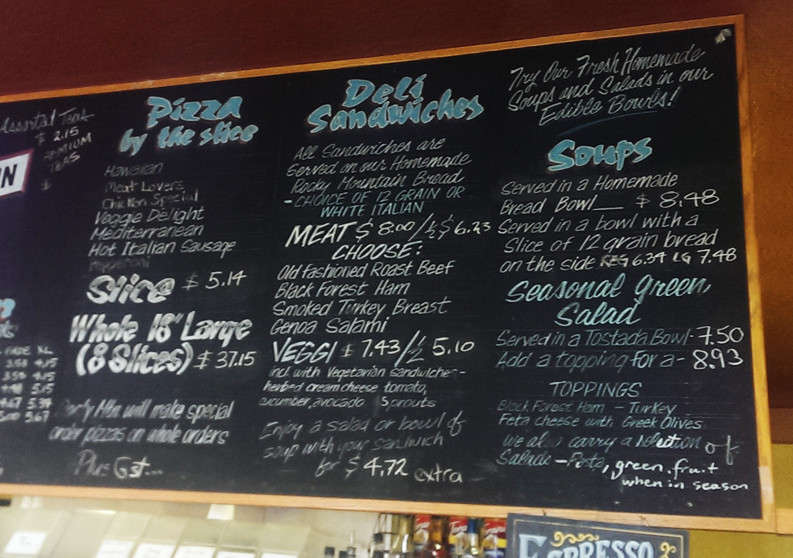 Assorted Teas
$ 2.15
PREMIUM
TEAS
$
N
Pizza
by the slice
Hawaiian
Meat Lovers
Chicken Special
Veggie Delight
Mediterranean
Hot Italian Sausage
Slice $ 5.14
Whole 18" Large
(8 Slices) $ 37.15
Mtn will make special
order pizzas on whole orders
Plus Gst...
Deli
Sandwiches
All Sandwiches are
Served on our Homemade
Rocky Mountain Bread
- CHOICE OF 12 GRAIN OR
WHITE ITALIAN
MEAT $ 8.00 / ½ $ 6.23
CHOOSE:
Old fashioned Roast Beef
Black Forest Ham
Smoked Turkey Breast
Genoa Salami
VEGGI $ 7.43 / ½ 5.10
incl. with Vegetarian Sandwiches -
herbed cream cheese tomato,
cucumber, avocado Sprouts
Enjoy a salad or bowl of
soup with your sandwich
for $ 4.72 extra
Try Our Fresh Homemade
Soups and Salads in our
Edible Bowls!
Soups
Served in a Homemade
Bread Bowl $ 8.48
Served in a bowl with a
Slice of 12 grain bread
on the side REG 6.34 LG 7.48
Seasonal Green
Salad
Served in a Tostada Bowl - 7.50
Add a topping for a - 8.93
TOPPINGS
Black Forest Ham - Turkey
Feta cheese with Greek Olives
We also carry a selection of
Salads - Pasta, green, fruit
when in season
ESPRESSO